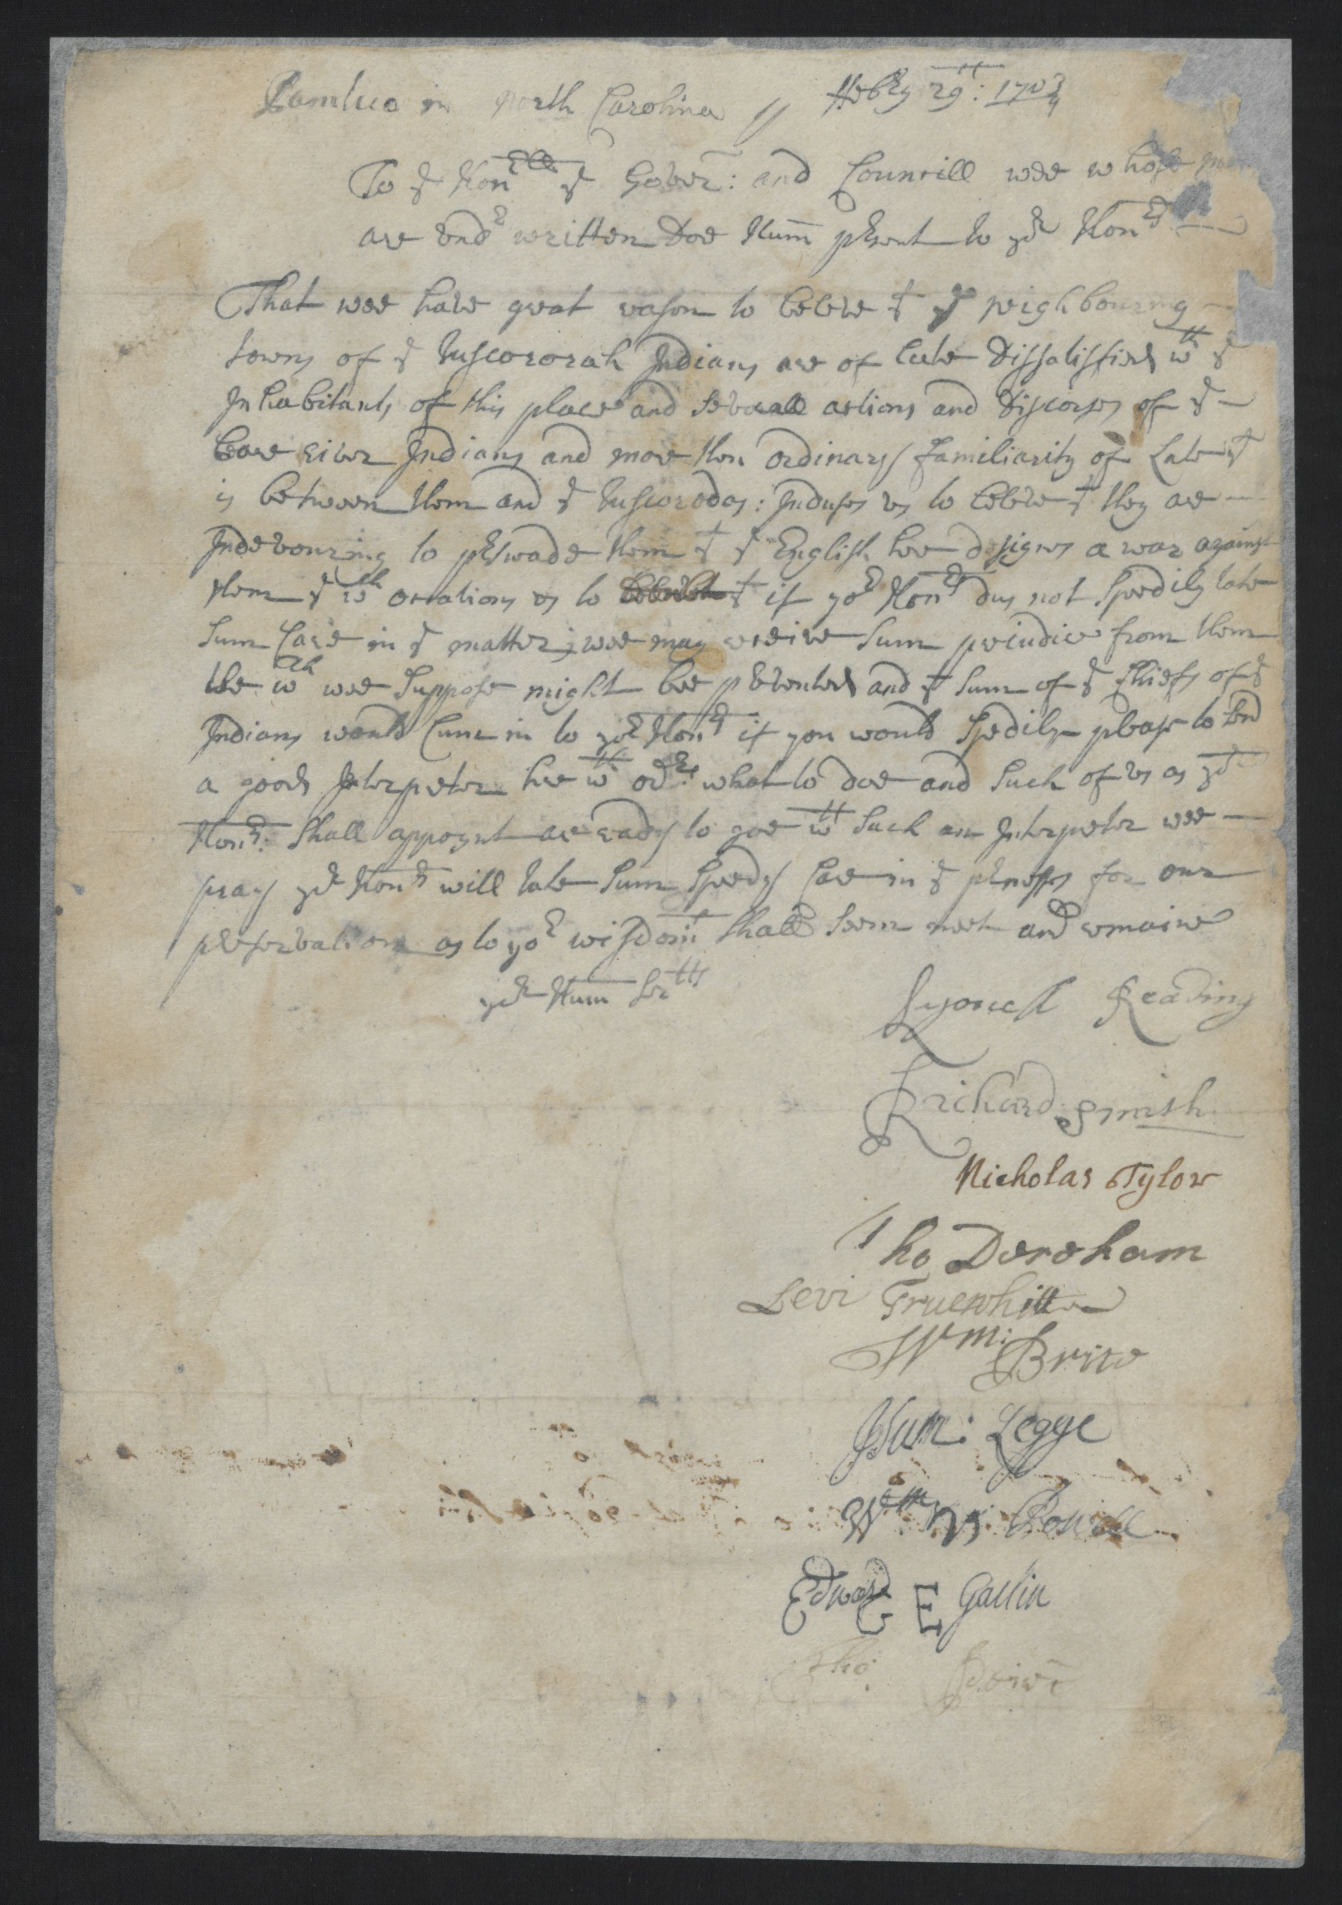 Pamlico in north Carolina ss Febry 29th: 1703/4
To ye Honble ye Gover: and Councill wee whose
are undr written Doe Hum present to yor Honrs
That wee have great reason to beleve yt ye neighbouring
towns of ye Tuscororah Indians are of late dissatisfied wth ye
Inhabitants of this place and severall actions and discorses of ye
beare river Indians and more then ordinary familiarity of Late yt
is between them and ye Tuscorodos: Induses us to beleve yt they are
Indevouring to perswade them yt ye English here designes a war against
them ye wch ocations us to yt if yor Honrs dus not Speedily take
Sum Care in ye matter; wee may receive Sum prejudice from them
the wch wee Suppose might bee prevented and yt Sum of ye chiefs of ye
Indians would Cum in to yor Honrs if you would Spedily please to send
a good Interpreter here wth ordrs what to doe and Such of us as yor
Honrs: Shall appoynt are ready to goe wth Such an Interpreter wee
pray yor Honrs will take Sum Speedy Care in ye premises for our
preservation as to yor wisdom Shall Seem meet and remaine
yor Hum Sertts
Lyonell Reading
Richard Smith
Nicholas Tylor
Tho Dereham
Levi Truewhitt
Wm: Brice
Hum: Legge
Wm Powell
Edward E Gatlin
Tho: